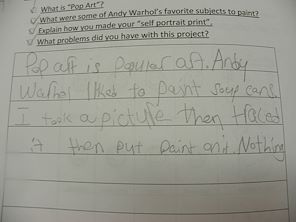 What is "Pop Art"?
What were some of Andy Warhol's favorite subjects to paint?
Explain how you made your "self portrait print".
What problems did you have with this project?
Pop art is Popular art. Andy
Warhol likes to paint soup cans.
I took a picture then traced
it then put paint on it. Nothing